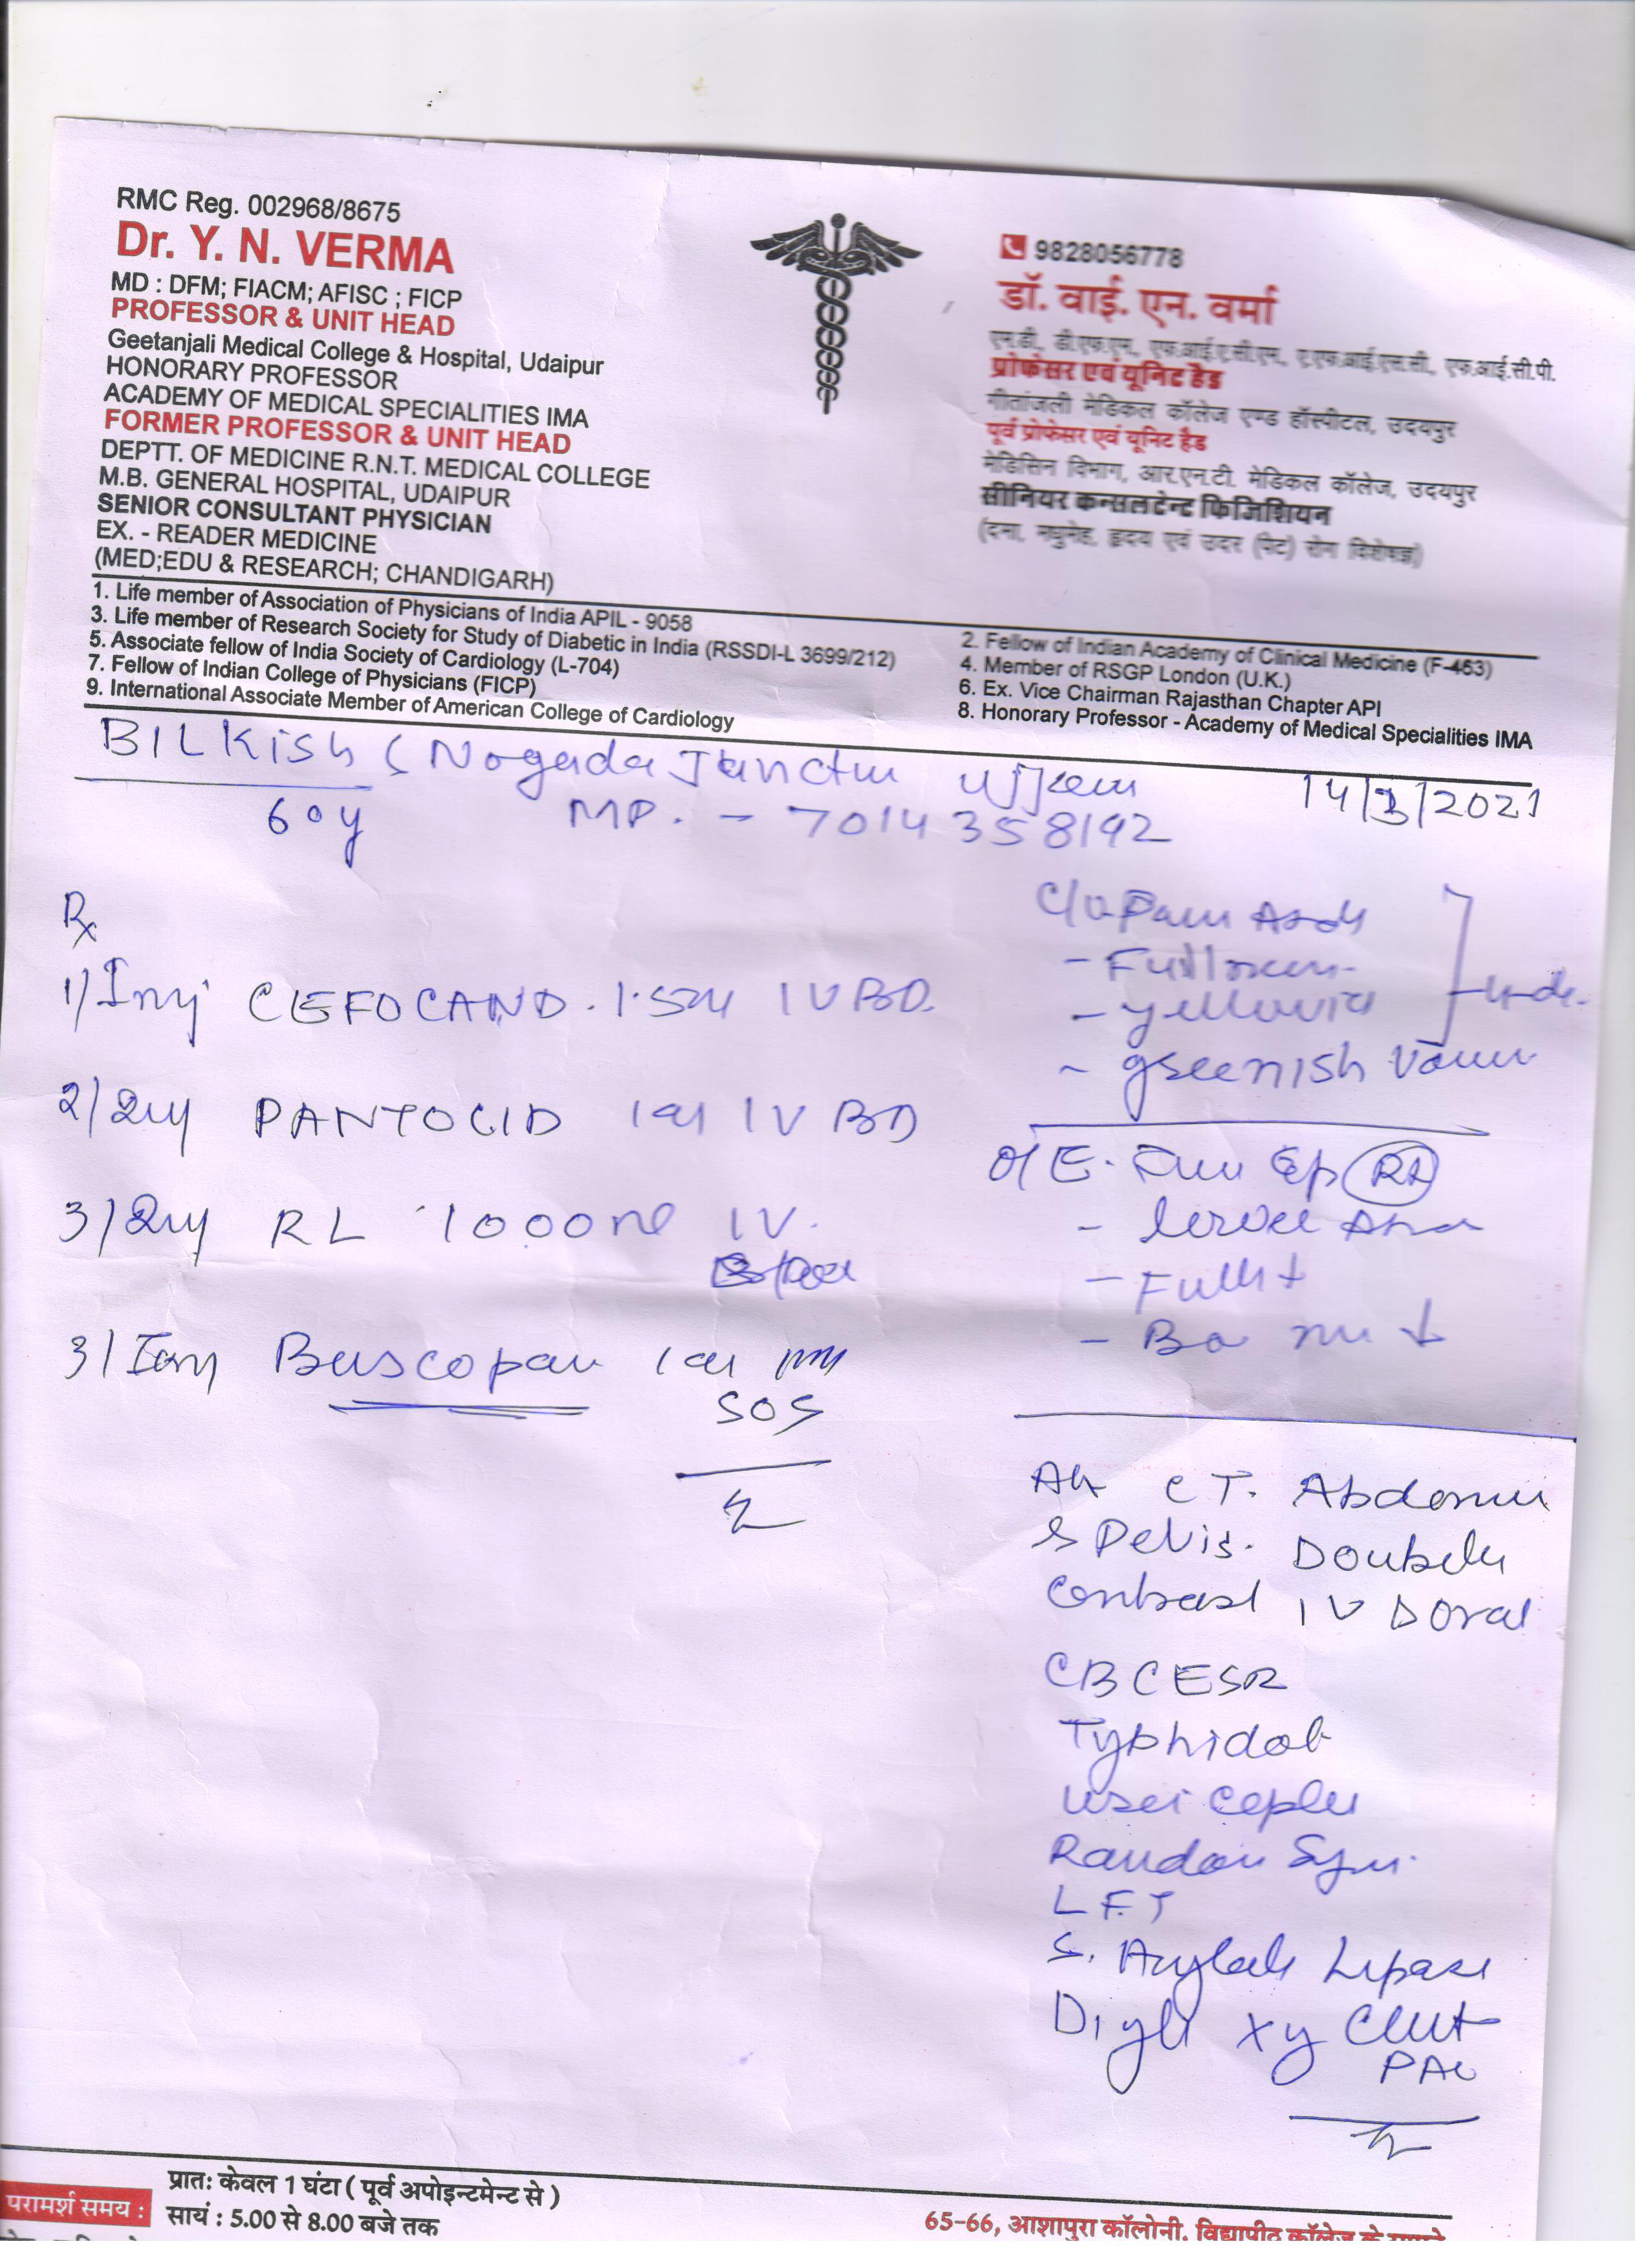 RMC Reg. 002968/8675
Dr. Y. N. VERMA
MD : DFM; FIACM; AFISC ; FICP
PROFESSOR & UNIT HEAD
Geetanjali Medical College & Hospital, Udaipur
HONORARY PROFESSOR
ACADEMY OF MEDICAL SPECIALITIES IMA
FORMER PROFESSOR & UNIT HEAD
DEPTT. OF MEDICINE R.N.T. MEDICAL COLLEGE
M.B. GENERAL HOSPITAL, UDAIPUR
SENIOR CONSULTANT PHYSICIAN
EX. - READER MEDICINE
(MED;EDU & RESEARCH; CHANDIGARH)
9828056778
डॉ. वाई. एन. वर्मा
एम.डी., डी.एफ.एम., एफ.आई.ए.सी.एम., ए.एफ.आई.एस.सी., एफ.आई.सी.पी.
प्रोफेसर एवं यूनिट हैड
गीतांजली मेडिकल कॉलेज एण्ड हॉस्पीटल, उदयपुर
पूर्व प्रोफेसर एवं यूनिट हैड
मेडिसिन विभाग, आर.एन.टी. मेडिकल कॉलेज, उदयपुर
सीनियर कन्सलटेन्ट फिजिशियन
(दमा, मधुमेह, हृदय एवं उदर (पेट) रोग विशेषज्ञ)
1. Life member of Association of Physicians of India APIL - 9058
2. Fellow of Indian Academy of Clinical Medicine (F-463)
3. Life member of Research Society for Study of Diabetic in India (RSSDI-L 3699/212)
4. Member of RSGP London (U.K.)
5. Associate fellow of India Society of Cardiology (L-704)
6. Ex. Vice Chairman Rajasthan Chapter API
7. Fellow of Indian College of Physicians (FICP)
8. Honorary Professor - Academy of Medical Specialities IMA
9. International Associate Member of American College of Cardiology
BILKish ( Nogada Junctun ujjain 14/3/2021
60y MP. - 7014358192
Rx
1) Inj CEFOCAND . 1.5 IV BD.
2) Inj PANTOCID IV BD
3) Inj RL 1000 ml IV.
3) Inj Buscopan
SOS
C/o Pain
- Fullness
- greenish
O/E.
CT. Abdomen
& Pelvis. Double
Contrast IV & Oral
CBC ESR
Typhidot
Random
LFT
S. Lipase
PAv
परामर्श समय :
प्रातः केवल 1 घंटा ( पूर्व अपोइन्टमेन्ट से )
सायं : 5.00 से 8.00 बजे तक
65-66, आशापुरा कॉलोनी, विद्यापीठ कॉलेज के सामने